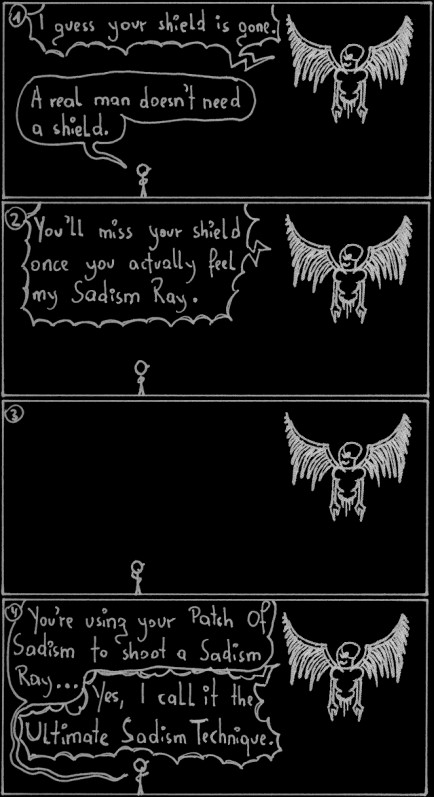 1
I guess your shield is gone.
A real man doesn't need
a shield.
2
You'll miss your shield
once you actually feel
my Sadism Ray.
3
4
You're using your Patch Of
Sadism to shoot a Sadism
Ray...
Yes, I call it the
Ultimate Sadism Technique.